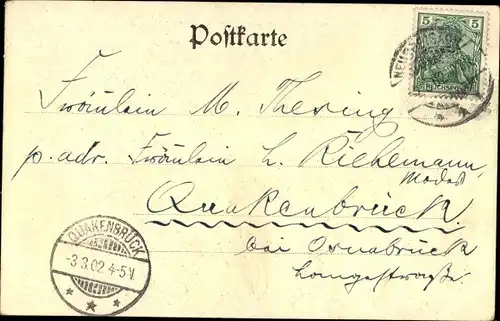 Postkarte
5 5
Fräulein M. Thesing
p. adr. Fräulein L. Riehemann,
Modes
Quakenbrück.
bei Osnabrück
Langestraße.
QUAKENBRÜCK
-3.3.02 4-5N